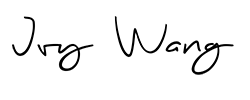 Ivy Wang